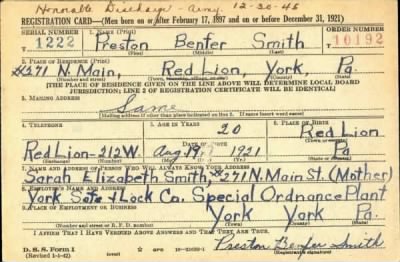 Honorable Discharge - Army. 12-20-45
REGISTRATION CARD—(Men born on or after February 17, 1897 and on or before December 31, 1921)
SERIAL NUMBER 1. NAME (Print) ORDER NUMBER
1222 Preston Benfer Smith 10192
(First) (Middle) (Last)
2. PLACE OF RESIDENCE (Print)
#271 N. Main, Red Lion, York Pa.
(Number and street) (Town, township, village, or city) (County) (State)
[THE PLACE OF RESIDENCE GIVEN ON THE LINE ABOVE WILL DETERMINE LOCAL BOARD
JURISDICTION; LINE 2 OF REGISTRATION CERTIFICATE WILL BE IDENTICAL]
3. MAILING ADDRESS
Same
[Mailing address if other than place indicated on line 2. If same insert word same]
4. TELEPHONE 5. AGE IN YEARS 6. PLACE OF BIRTH
20 Red Lion
DATE OF BIRTH (Town or county)
Red Lion-212W Aug 19 1921 Pa.
(Exchange) (Number) (Mo.) (Day) (Yr.) (State or country)
7. NAME AND ADDRESS OF PERSON WHO WILL ALWAYS KNOW YOUR ADDRESS
Sarah Elizabeth Smith, #271 N. Main St. (Mother)
8. EMPLOYER'S NAME AND ADDRESS
York Safe & Lock Co. Special Ordnance Plant
9. PLACE OF EMPLOYMENT OR BUSINESS
York York Pa.
(Number and street or R. F. D. number) (Town) (County) (State)
I AFFIRM THAT I HAVE VERIFIED ABOVE ANSWERS AND THAT THEY ARE TRUE.
D. S. S. Form 1
(Revised 1-1-42) Preston Benfer Smith